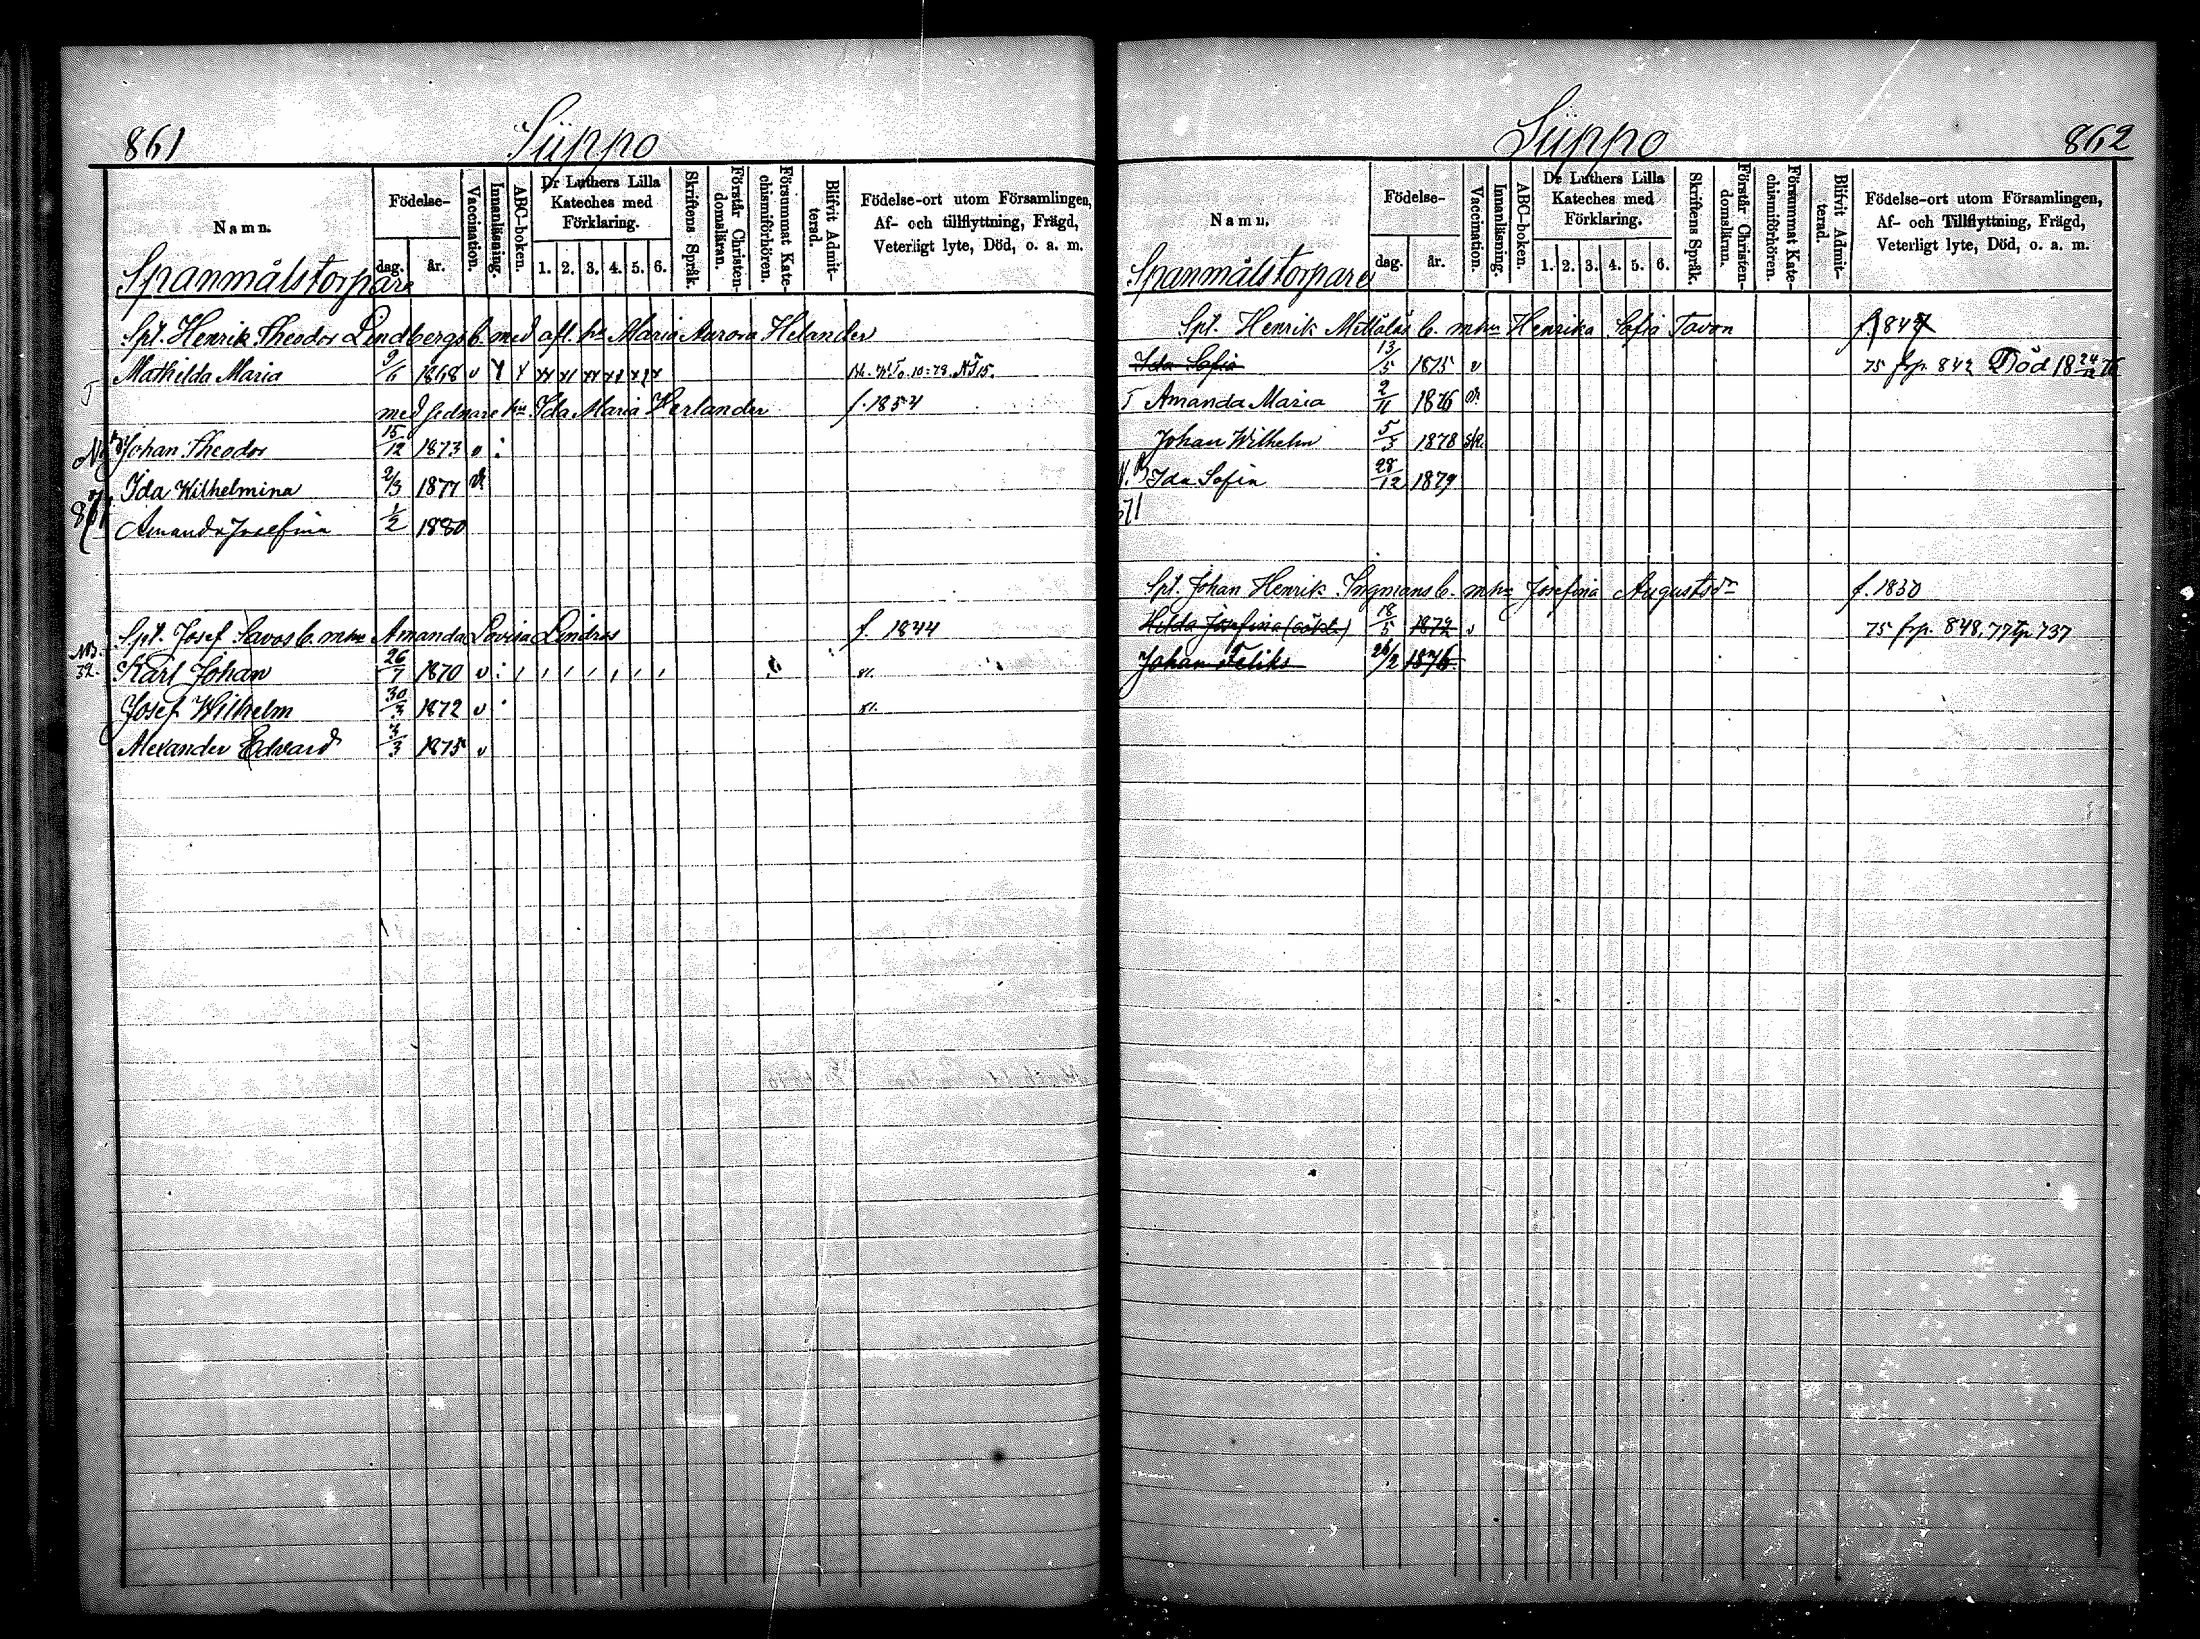 861
Süppo
Namn.
Födelse-
dag.
år.
Vaccination.
Innanläsning.
ABC-boken.
Dr Luthers Lilla
Kateches med
Förklaring.
1. 2. 3. 4. 5. 6.
Skriftens Språk.
Förstår Christen-
domsläran.
Försummat Kate-
chismiförhören.
Blifvit Admit-
terad.
Födelse-ort utom Församlingen,
Af- och tillflyttning, Frägd,
Veterligt lyte, Död, o. a. m.
Spanmålstorpare
Spt. Henrik Theodor Lindbergs b. med afl. hu Maria Aurora Helander
Mathilda Maria 9/6 1868 v
med sednare hu Ida Maria Herlander f. 1854
Johan Theodor 15/12 1873 v :
Ida Wilhelmina 2/3 1877
Amanda Josefina 1/2 1880
Spt. Josef Savos b. m hu Amanda Lovisa Lindros f. 1844
Karl Johan 26/7 1870 v :
Josef Wilhelm 30/3 1872 v
Alexander Edvard 3/3 1875 v
Süppo
862
Namn.
Födelse-
dag.
år.
Vaccination.
Innanläsning.
ABC-boken.
Dr Luthers Lilla
Kateches med
Förklaring.
1. 2. 3. 4. 5. 6.
Skriftens Språk.
Förstår Christen-
domsläran.
Försummat Kate-
chismiförhören.
Blifvit Admit-
terad.
Födelse-ort utom Församlingen,
Af- och Tillflyttning, Frägd,
Veterligt lyte, Död, o. a. m.
Spanmålstorpare
Spt. Henrik Mettäläs b. m hu Henrika Sofia Tavon
Ida Sofia 13/5 1875 v 75 frp. 842 Död 18 24/12 76
T Amanda Maria 2/11 1876
Johan Wilhelm 5/3 1878
Ida Sofia 28/12 1879
Spt. Johan Henrik Ingmans b. m hu Josefina Augustdr f. 1830
Hilda Josefina 18/5 1872 v 75 frp. 848. 77 tp 737
Johan Feliks 26/2 1876